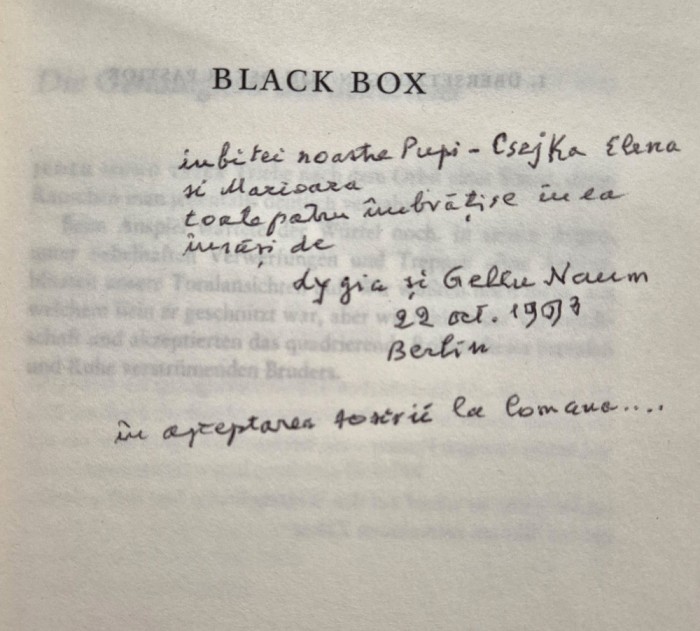 BLACK BOX
iubitei noastre Pupi - Csejka Elena
si Marioara
toate patru îmbrățișe în ea
însăși de
Lygia și Gellu Naum
22 oct. 1993
Berlin
în așteptarea sosirii la Comana....